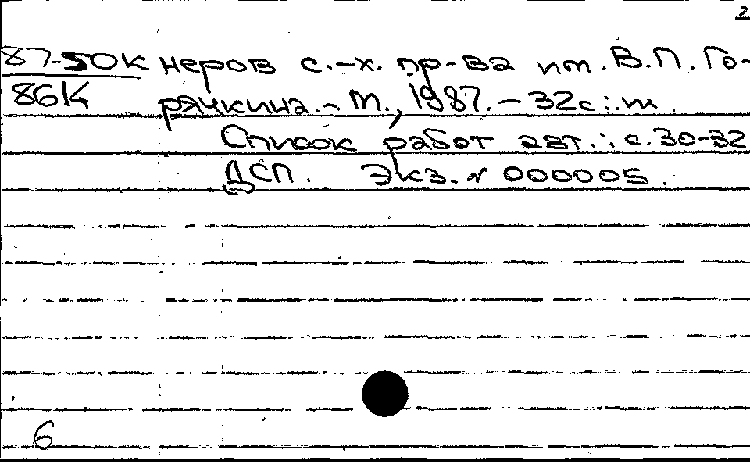 2
87-50к неров с.-х. пр-ва им. В.П. Го-
86к рячкина. - М., 1987. - 32с.: ил.
Список работ авт.: с.30-32
ДСП. Экз. № 000005.
6